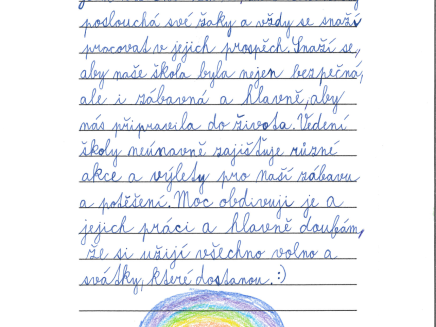 poslouchá své žáky a vždy se snaží
pracovat v jejich prospěch. Snaží se,
aby naše škola byla nejen bezpečná,
ale i zábavná a hlavně, aby
nás připravila do života. Vedení
školy neúnavně zajišťuje různé
akce a výlety pro naší zábavu
a potěšení. Moc obdivuji je a
jejich práci a hlavně doufám,
že si užijí všechno volno a
svátky, které dostanou. :)